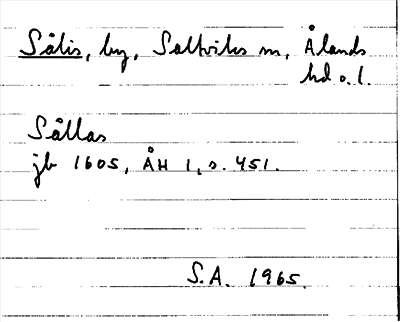 Sålis, by, Saltviks sn, Ålands
hd o. l.
Sållas
jb 1605, ÅH 1, s. 451.
S.A. 1965.